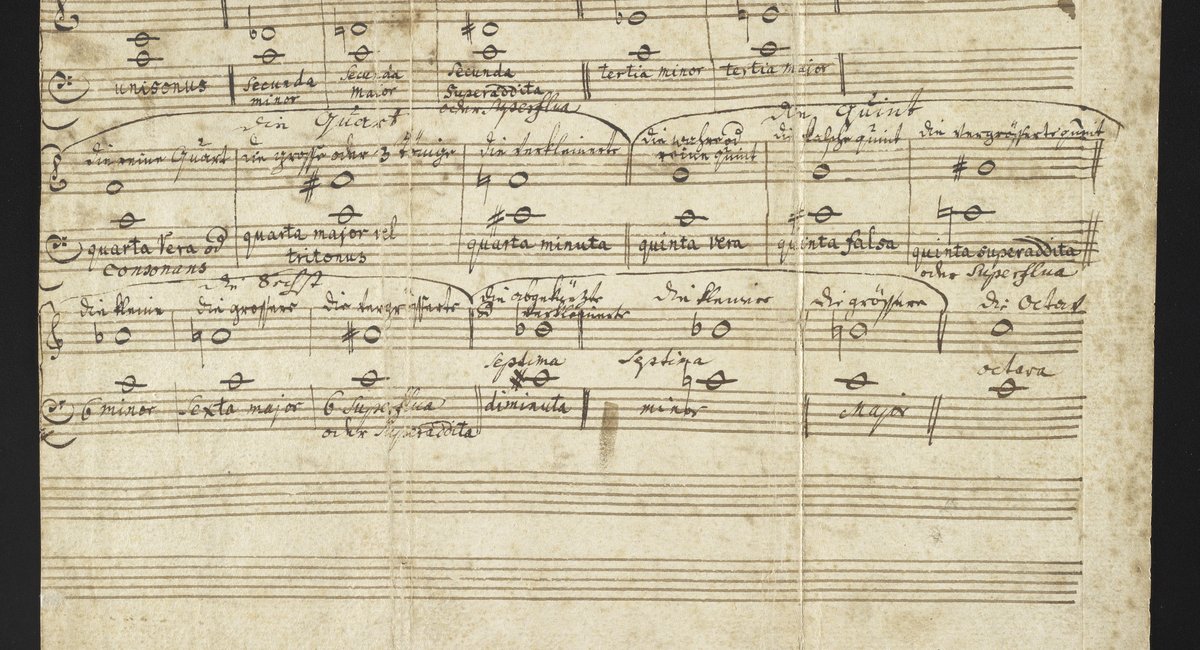 unisonus
Secunda minor
Secunda major
Secunda Superaddita oder Superflua
tertia minor
tertia major
die Quart
die Quint
die reine Quart
die grosse oder 3 tönige
die verkleinerte
die wahre od reine quint
die falsche quint
die vergrösserte quint
quarta vera od Consonans
quarta major vel tritonus
quarta minuta
quinta vera
quinta falsa
quinta superaddita oder Superflua
die Sechst
die kleine
die grossere
die vergrösserte
die abgekürzte od verkleinerte
die kleinere
die grössere
die Octav
Septima
Septima
octava
6 minor
Sexta major
6 Superflua oder Superaddita
diminuta
minor
Major